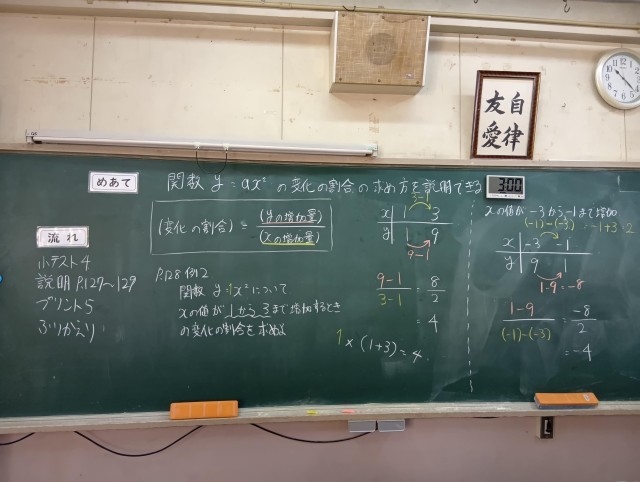 自律
友愛
めあて
関数 y=ax² の変化の割合の求め方を説明できる
3:00
流れ
小テスト4
説明 P.127~129
プリント5
ふりかえり
(変化の割合) = (yの増加量)
(xの増加量)
P.128 例2
関数 y=1x² について
xの値が 1から3まで増加するとき
の変化の割合を求めよ
3-1
x 1 3
y 1 9
9-1
9-1 = 8
3-1 2
= 4
1×(1+3)=4
xの値が -3から-1まで増加
(-1)-(-3) = -1+3=2
x -3 -1
y 9 1
1-9=-8
1-9 = -8
(-1)-(-3) 2
= -4